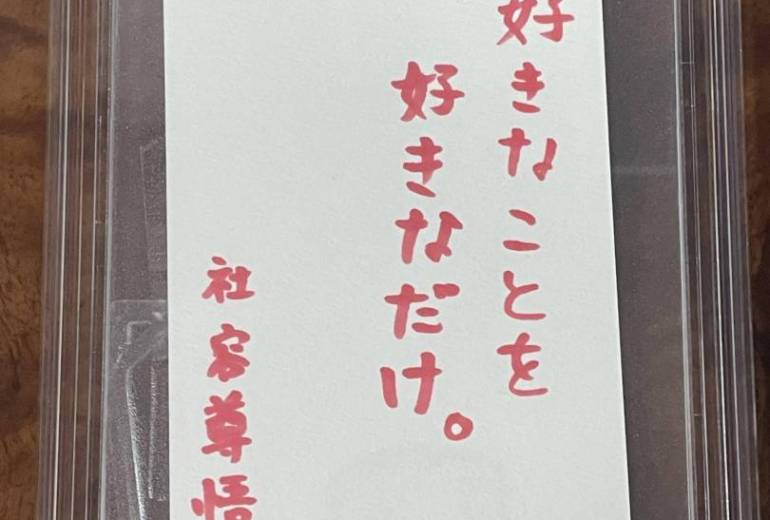 好きなことを
好きなだけ。
社容尊悟